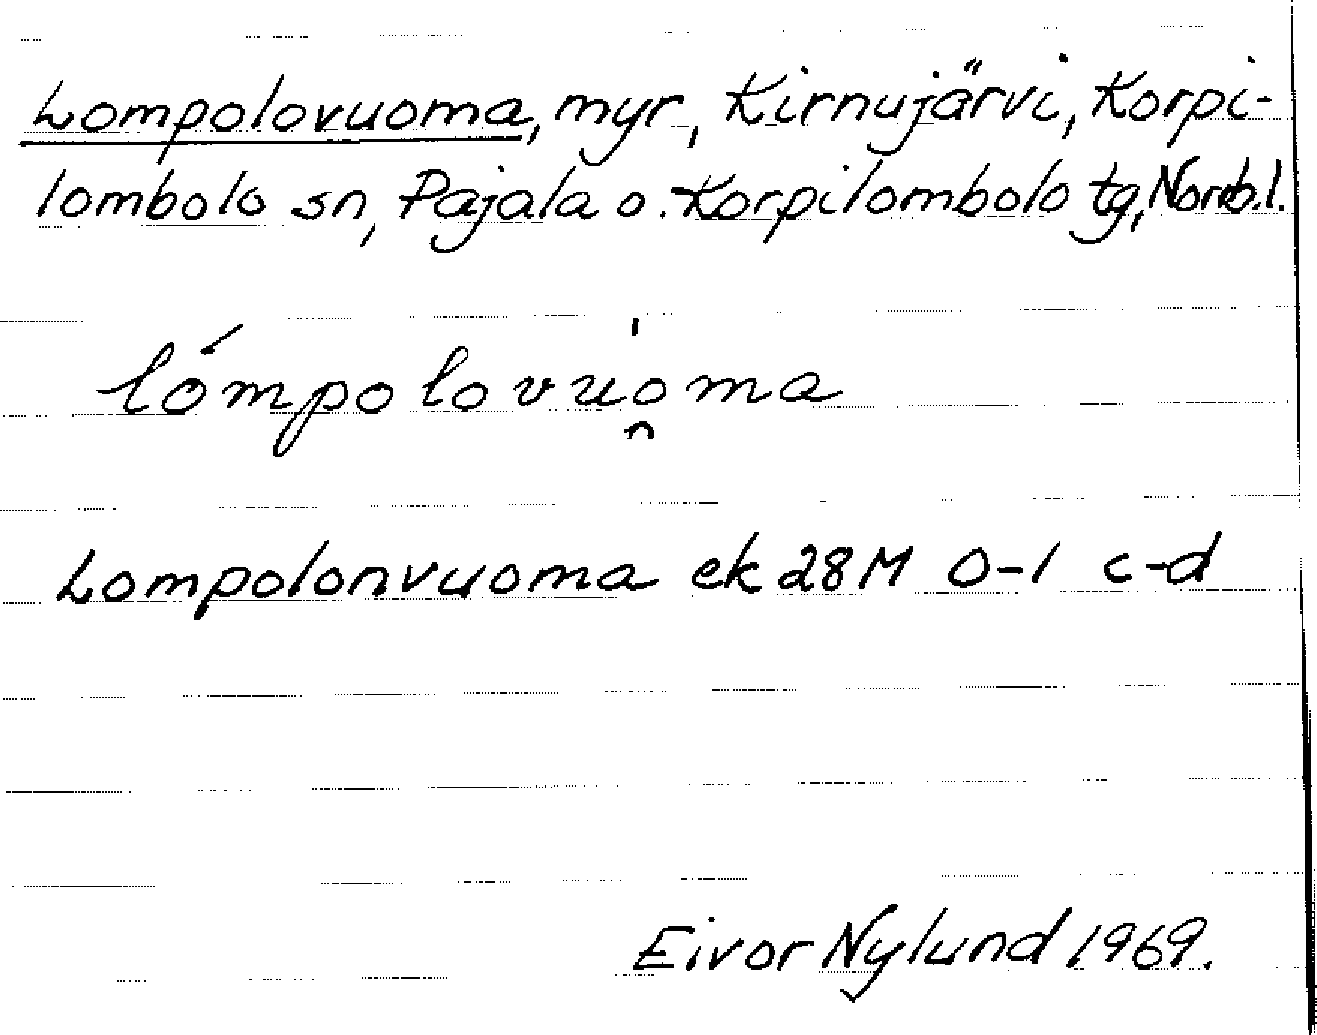 Lompolovuoma, myr, Kirnujärvi, Korpi-
lombolo sn, Pajala o. Korpilombolo tg, Norrb.l.
lómpolovu̯òma
Lompolonvuoma ek 28M 0-1 c-d
Eivor Nylund 1969.